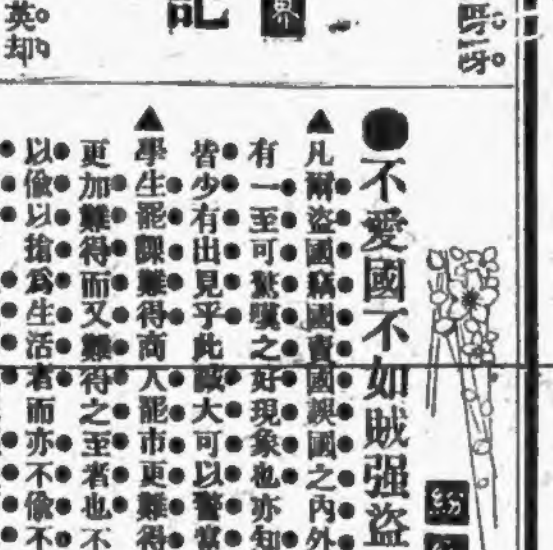 呀呀
界
記
英却
紛
●不愛國不如賊强盜
▲凡爾盜國竊國賣國誤國之內外
有一至可驚嘆之好現象也亦知
皆少有出見乎此誠大可以警當
▲學生罷課難得商人罷市更難得
更加難得而又難得之至者也不
以偸以搶爲生活者而亦不偸不